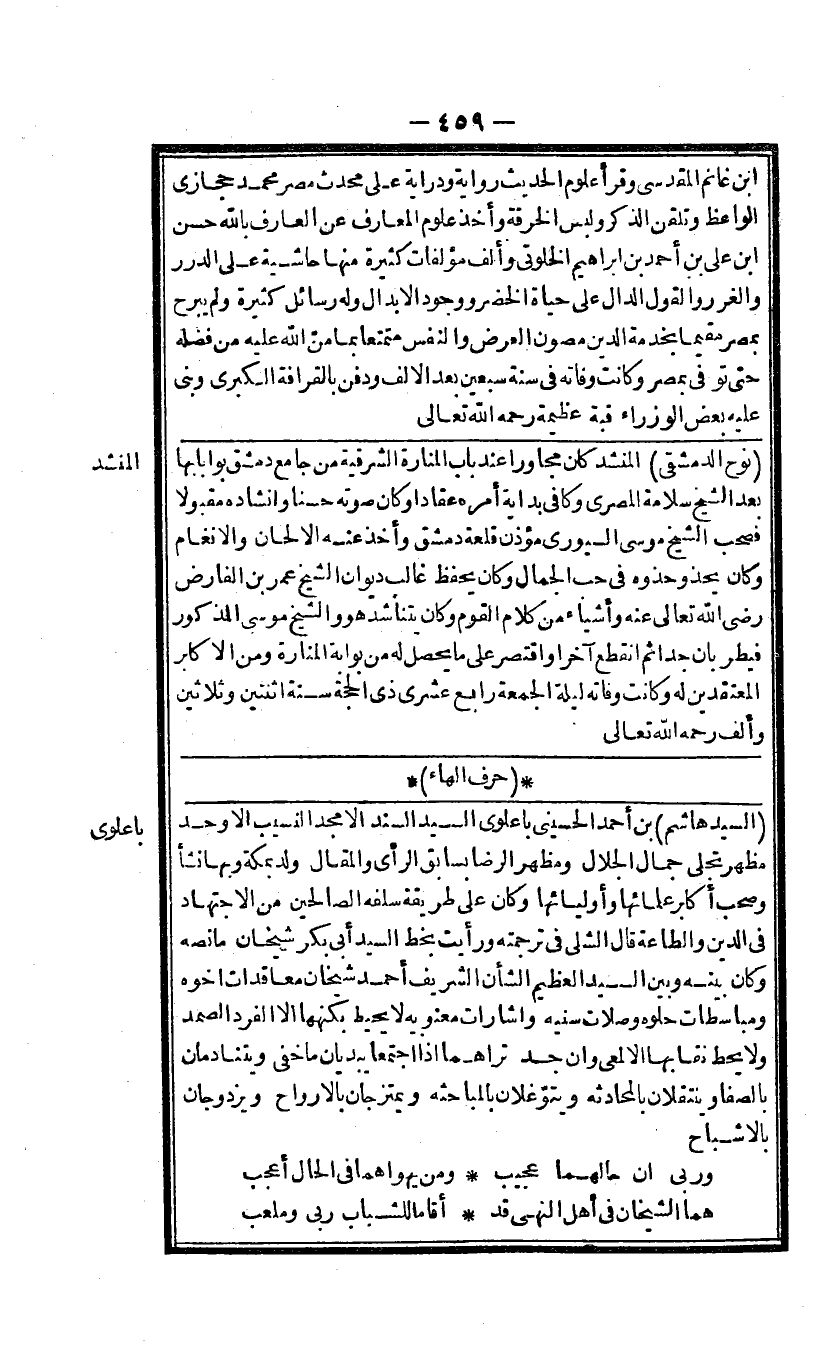 — ٤٥٩ —
ابن غانم المقدسى وقرأ علوم الحديث رواية ودراية على محدث مصر محمد حجازى
الواعظ وتلقن الذكر ولبس الخرقة وأخذ علوم المعارف عن العارف بالله حسن
ابن على بن أحمد بن ابراهيم الخلوتى وألف مؤلفات كثيرة منها حاشية على الدرر
والغرر والقول الدال على حياة الخضر ووجود الابدال وله رسائل كثيرة ولم يبرح
بمصر مقيما بخدمة الدين مصون العرض والنفس متمتعا بما منّ الله عليه من فضله
حتى توفى بمصر وكانت وفاته فى سنة سبعين بعد الالف ودفن بالقرافة الكبرى وبنى
عليه بعض الوزراء قبة عظيمة رحمه الله تعالى
المنشد
(نوح الدمشقى) المنشد كان مجاورا عند باب المنارة الشرقية من جامع دمشق بوابا بها
بعد الشيخ سلامة المصرى وكا فى بداية أمره عقادا وكان صوته حسنا وانشاده مقبولا
فصحب الشيخ موسى السيورى مؤذن قلعة دمشق وأخذ عنه الالحان والانغام
وكان يحذو حذوه فى حب الجمال وكان يحفظ غالب ديوان الشيخ عمر بن الفارض
رضى الله تعالى عنه وأشياء من كلام القوم وكان يتناشد هو والشيخ موسى المذكور
فيطربان جدا ثم انقطع آخرا واقتصر على ما يحصل له من بوابة المنارة ومن الاكابر
المعتقدين له وكانت وفاته ليلة الجمعة رابع عشرى ذى الحجة سنة اثنتين وثلاثين
وألف رحمه الله تعالى
*(حرف الهاء)*
باعلوى
(السيد هاشم) بن أحمد الحسينى باعلوى السيد السند الامجد النسيب الاوحد
مظهر تجلى جمال الجلال ومظهر الرضا بسابق الرأى والمقال ولد بمكة وبها نشأ
وصحب أكابر علمائها وأوليائها وكان على طريقة سلفه الصالحين من الاجتهاد
فى الدين والطاعة قال الشلى فى ترجمته ورأيت بخط السيد أبى بكر شيخان ما نصه
وكان بينه وبين السيد العظيم الشأن الشريف أحمد شيخان معاقدات اخوه
ومباسطات حلوه وصلات سنيه واشارات معنويه لا يحيط بكنهها الا الفرد الصمد
ولا يحط نقابها الالمعى وان جد تراهما اذا اجتمعا يبديان ما خفى ويتنادمان
بالصفا ويتنقلان بالمحادثه ويتوغلان بالمباحثه ويمتزجان بالارواح ويزدوجان
بالاشباح
وربى ان حالهما عجيب * ومن يهواهما فى الحال أعجب
هما الشيخان فى أهل النهى قد * أقاما للشباب ربى وملعب